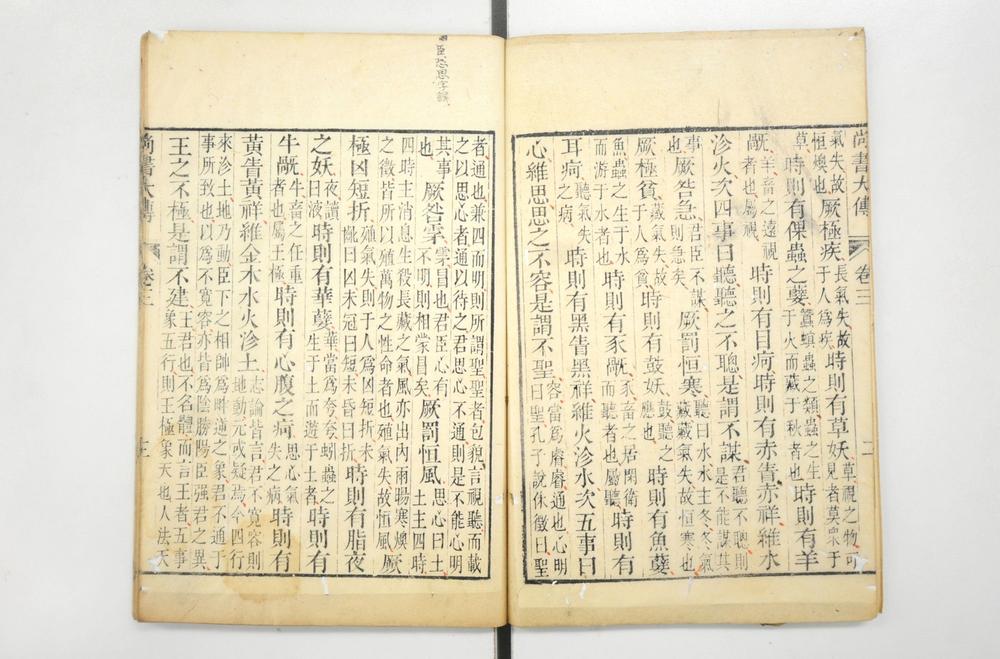 尚書大傳 卷三
氣失故恒燠也厥極疾長氣失故于人爲疾時則有草妖草視之物可見者莫衆于
草時則有倮蟲之孽蠶螟蟲之類蟲之生于火而藏于秋者也時則有羊
旤羊畜之遠視者也屬視時則有目痾時則有赤眚赤祥維水
沴火次四事曰聽聽之不聰是謂不謀君聽不聰則是不能謀其
事也厥咎急君臣不謀則急矣厥罰恒寒聽曰水水主冬冬氣藏藏氣失故恒寒也
厥極貧藏氣失故于人爲貧時則有鼓妖鼓聽之應也時則有魚孽
魚蟲之生于水而游于水者也時則有豕旤豕畜之居閑衛而聽者也屬聽時則有
耳痾聽氣失之病時則有黑眚黑祥維火沴水次五事曰
心維思思之不容是謂不聖容當爲睿睿通也心明曰聖孔子說休徵曰聖
臣恐思字誤
者通也兼四而明則所謂聖聖者包貌言視聽而載之以思心者通以待之君思心不通則是不能心明
其事也厥咎雺雺冒也君臣心有不明則相蒙冒矣厥罰恒風思心曰土土主四時
四時主消息生殺長藏之氣風亦出內雨暘寒燠之徵皆所以殖萬物之性命者也殖氣失故恒風厥
極凶短折殖氣失則于人爲凶短折未齔曰凶未冠曰短未昏曰折時則有脂夜
之妖夜讀曰液時則有華孽華當爲夸夸蚓蟲之生于土而遊于土者時則有
牛旤牛畜之任重者也屬王極時則有心腹之痾思心氣失之病時則有
黃眚黃祥維金木水火沴土志論皆言君不寬容則地動元或疑焉今四行
來沴土地乃動臣下之相帥爲畔逆之象君不通于事所致也以爲不寬容亦皆爲陰勝陽臣强君之異
王之不極是謂不建王君也不名體而言王者五事象五行則王極象天也人法天
尚書大傳 卷三 十二